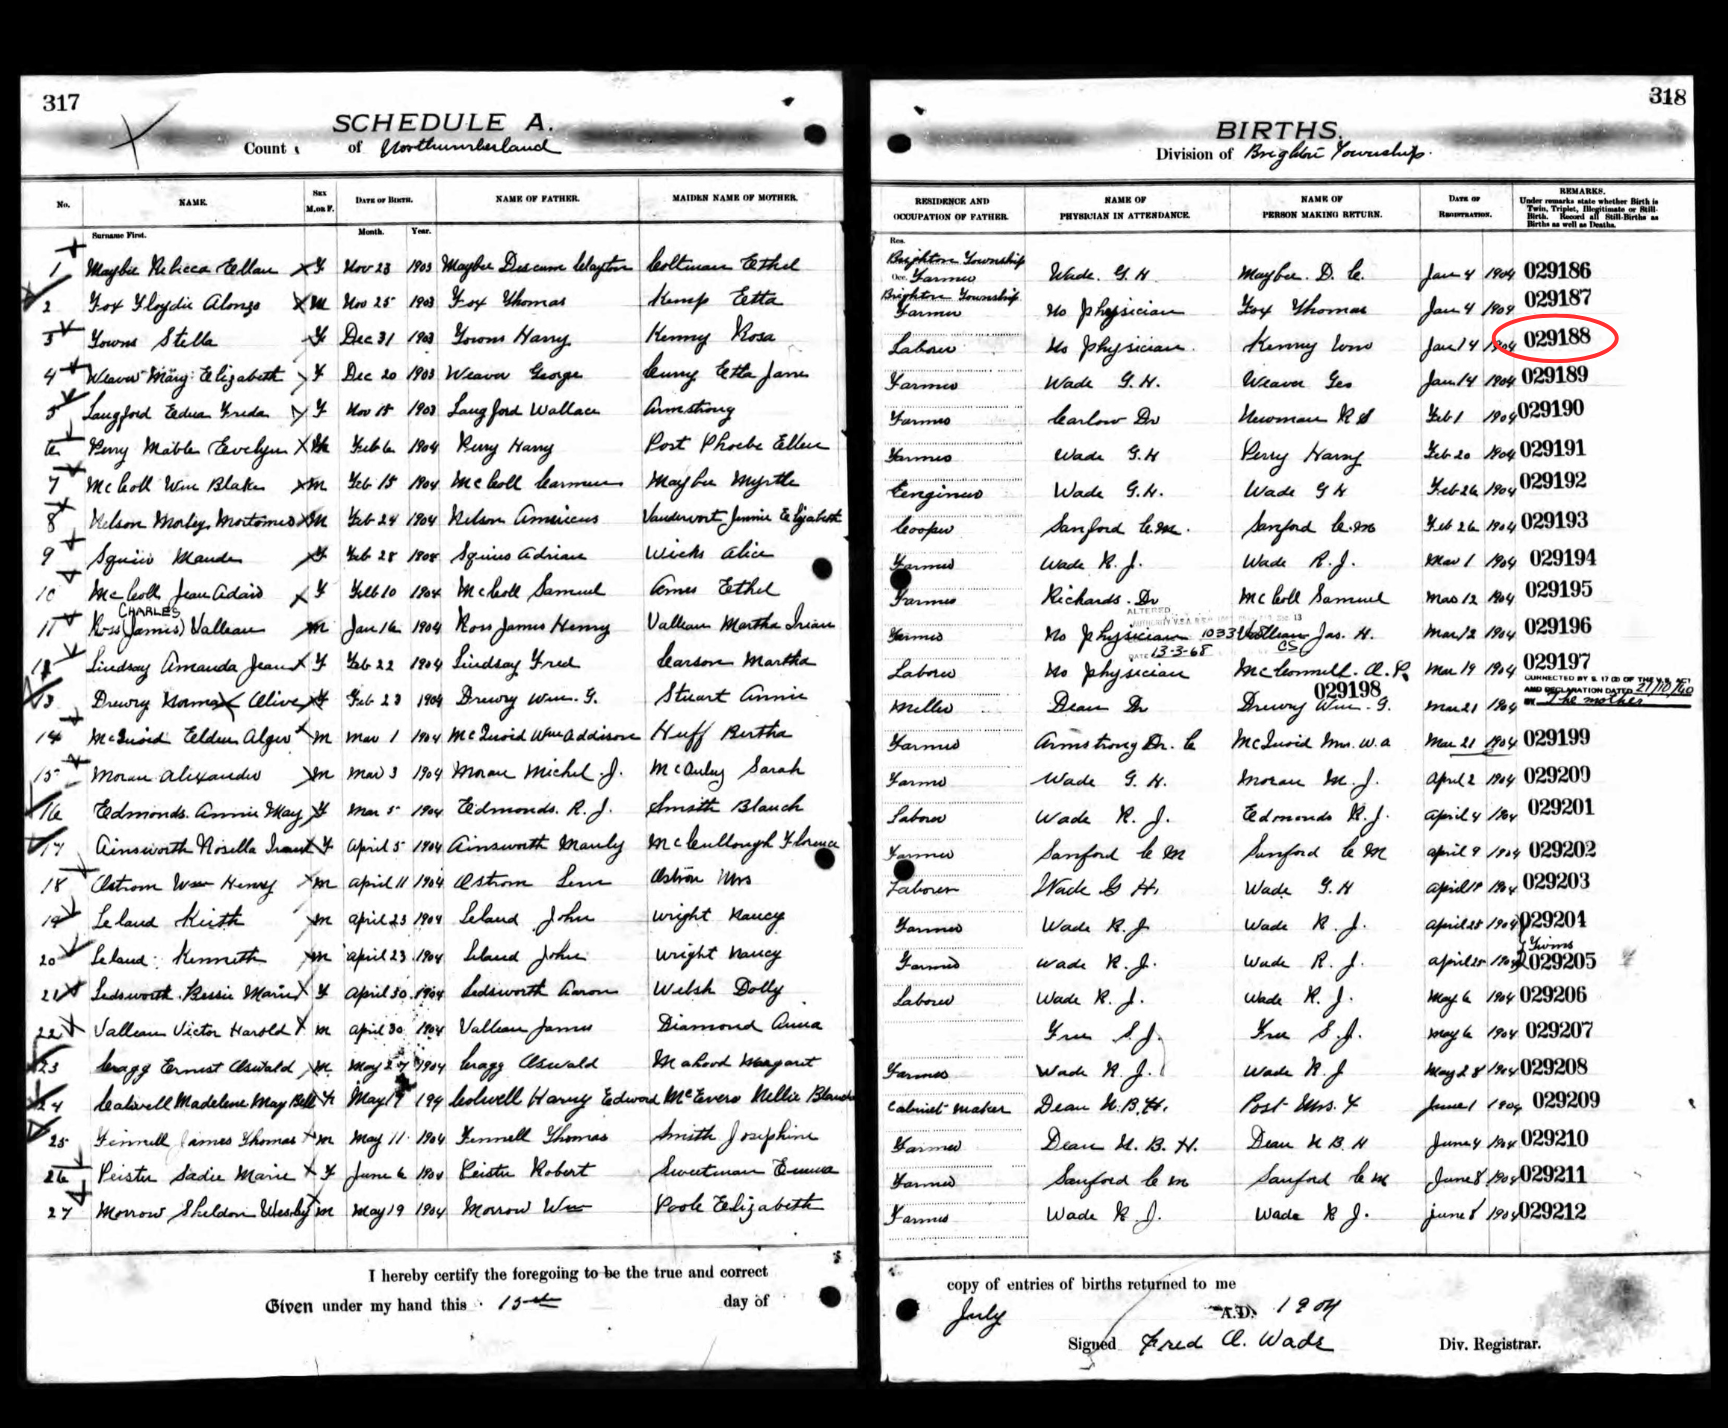 317
SCHEDULE A.
Count of Northumberland
No. NAME. SEX M. OR F. DATE OF BIRTH. NAME OF FATHER. MAIDEN NAME OF MOTHER.
Surname First. Month. Year.
1 Maybee Rebecca Ellen F Nov 23 1903 Maybee Clayton Coltman Ethel
2 Fox Floydie Alonzo M Nov 25 1903 Fox Thomas Kemp Etta
3 Towns Stella F Dec 31 1903 Towns Harry Kenny Rosa
4 Weaver Mary Elizabeth F Dec 20 1903 Weaver George Etta Jane
5 Langford Edna Freda F Nov 15 1903 Langford Wallace Armstrong
6 Perry Mable Evelyn Feb 6 1904 Perry Harry Post Phoebe Ellen
7 McColl Wm Blake M Feb 15 1904 McColl Maybee Myrtle
8 Nelson Morley Mortomer M Feb 24 1904 Nelson Americus Vandervort Jennie Elizabeth
9 Squires Maude F Feb 28 Squires Adrian Wicks Alice
10 McColl Jean Adair F Feb 10 1904 McColl Samuel Ames Ethel
CHARLES
11 Ross (James) Valleau M Jan 16 1904 Ross James Henry Valleau Martha
12 Lindsay Amanda Jean F Feb 22 1904 Lindsay Fred Carson Martha
13 Drewry Norma Olive F Feb 23 1904 Drewry Wm. G. Stuart Annie
14 McQuoid Elden Alger M Mar 1 1904 McQuoid Wm Addison Huff Bertha
15 Moran Alexander M Mar 3 1904 Moran Michel J. McAuley Sarah
16 Edmonds. Annie May F Mar 5 1904 Edmonds. R. J. Smith Blanch
17 Ainsworth Rosella F April 5 1904 Ainsworth Manly McCullough Florence
18 Ostrom Wm Henry M April 11 1904 Ostrom Ostrom Mrs
19 Leland Kieth M April 23 1904 Leland John Wright Nancy
20 Leland Kenneth M April 23 1904 Leland John Wright Nancy
21 Ledsworth Bessie Marie F April 30 1904 Ledsworth Aaron Welsh Dolly
22 Valleau Victor Harold M April 30 1904 Valleau James Diamond Anna
23 Cragg Ernest Oswald M May 27 1904 Cragg Oswald Mahood Margaret
24 Colwell Madelene May Bell F May 1904 Colwell Harry Edward McEvers Nellie Blanche
25 Fennell James Thomas M May 11 1904 Fennell Thomas Smith Josephine
26 Peister Sadie Marie F June 6 1904 Peister Robert Sweetman Emma
27 Morrow Sheldon Wesley M May 19 1904 Morrow Wm Poole Elizabeth
I hereby certify the foregoing to be the true and correct
Given under my hand this 15th day of
318
BIRTHS.
Division of Brighton Township.
RESIDENCE AND OCCUPATION OF FATHER. NAME OF PHYSICIAN IN ATTENDANCE. NAME OF PERSON MAKING RETURN. DATE OF REGISTRATION. REMARKS.
Under remarks state whether Birth is Twin, Triplet, Illegitimate or Still-Birth. Record all Still-Births as Births as well as Deaths.
Res. Brighton Township
Occ. Farmer Wade. G. H. Maybee. D. C. Jan 4 1904 029186
Brighton Township
Farmer No Physician Fox Thomas Jan 4 1904 029187
Laborer No Physician Kenny Wm Jan 14 1904 029188
Farmer Wade G. H. Weaver Geo Jan 14 1904 029189
Farmer Carlow Dr Newman R S Feb 1 1904 029190
Farmer Wade G. H Perry Harry Feb 20 1904 029191
Engineer Wade G. H. Wade G H Feb 26 1904 029192
Cooper Sanford C. M. Sanford C. M Feb 26 1904 029193
Farmer Wade R. J. Wade R. J. Mar 1 1904 029194
Farmer Richards. Dr McColl Samuel Mar 12 1904 029195
ALTERED
Farmer No Physician Valleau Jas. H. Mar 12 1904 029196
DATE 13-3-68 CS
Laborer No Physician McConnell. A. P. Mar 19 1904 029197
CORRECTED BY S. 17 (2) OF THE V.S. ACT
AND DECLARATION DATED 21/10/40
029198
Miller Dean Dr Drewry Wm. G. Mar 21 1904 The mother
Farmer Armstrong Dr. C McQuoid Mrs. W. A Mar 21 1904 029199
Farmer Wade G. H. Moran M. J. April 2 1904 029200
Laborer Wade R. J. Edmonds R. J. April 4 1904 029201
Farmer Sanford C M Sanford C M April 9 1904 029202
Laborer Wade G H. Wade G. H April 18 1904 029203
Farmer Wade R. J Wade R. J. April 25 1904 029204
Twins
Farmer Wade R. J. Wade R. J. April 25 1904 029205
Laborer Wade R. J. Wade R. J. May 6 1904 029206
Free S. J. Free S. J. May 6 1904 029207
Farmer Wade R. J. Wade R. J May 28 1904 029208
Cabinet Maker Dean N. B. H. Post Mrs. F June 1 1904 029209
Farmer Dean N. B. H. Dean N B H June 4 1904 029210
Farmer Sanford C M Sanford C M June 8 1904 029211
Farmer Wade R J. Wade R J. June 8 1904 029212
copy of entries of births returned to me
July A.D. 1904
Signed Fred A. Wade Div. Registrar.